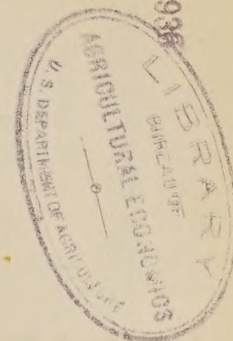 936
LIBRARY
BUREAU OF
AGRICULTURAL ECONOMICS
U. S. DEPARTMENT OF AGRICULTURE